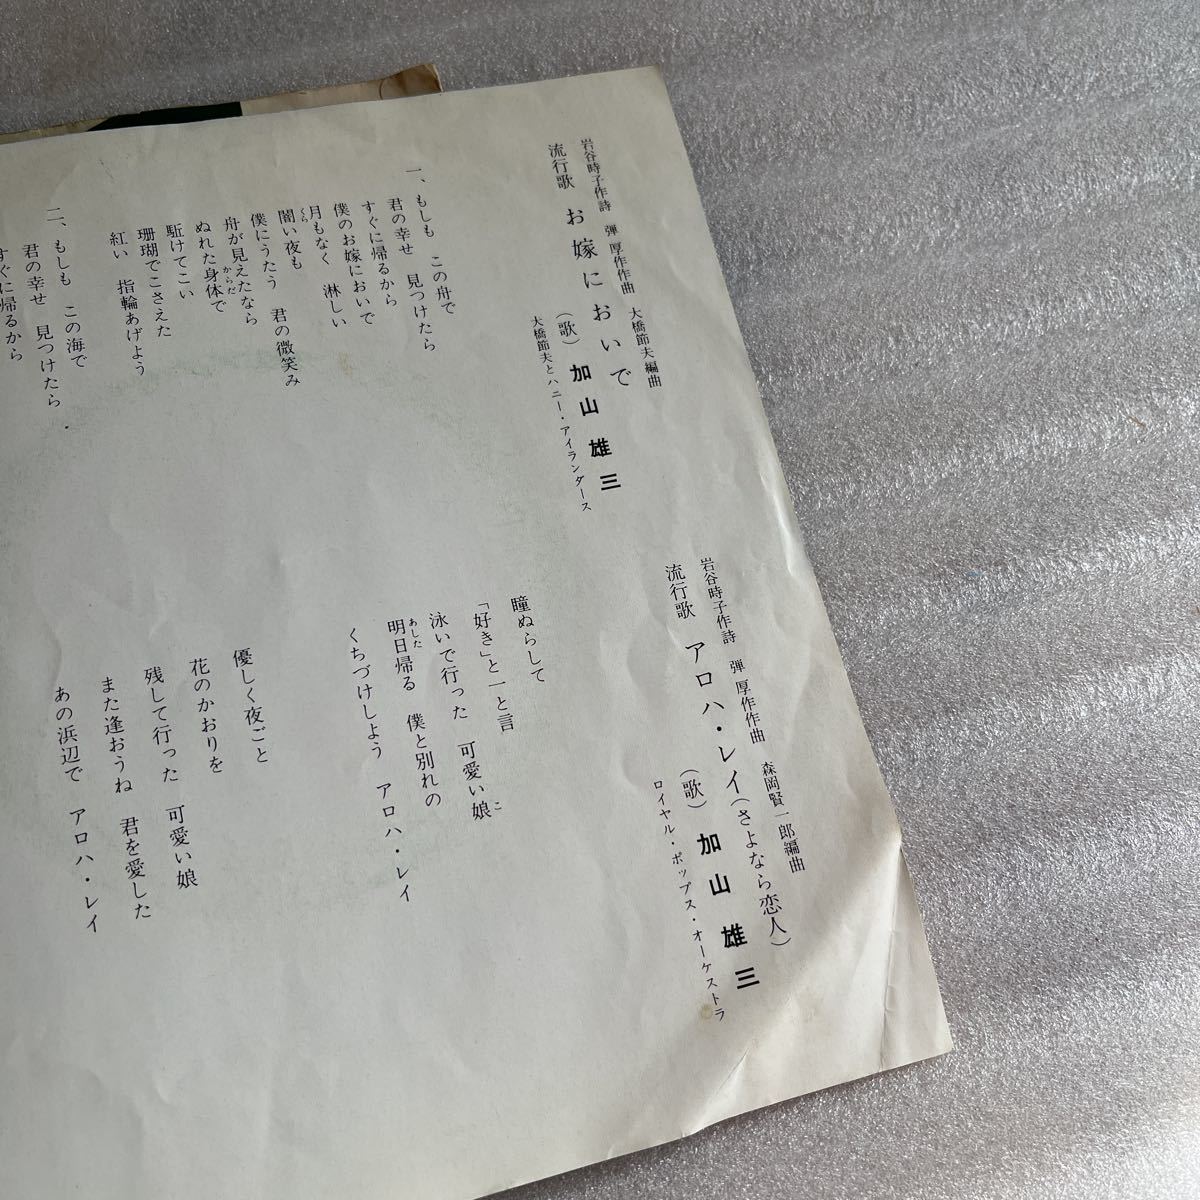 岩谷時子作詩 弾 厚作作曲 大橋節夫編曲
流行歌 お嫁においで
(歌) 加山雄三
大橋節夫とハニー・アイランダース
一、もしも この舟で
君の幸せ 見つけたら
すぐに帰るから
僕のお嫁においで
月もなく 淋しい
闇い夜も
くら
僕にうたう 君の微笑み
舟が見えたなら
ぬれた身体で
からだ
駈けてこい
珊瑚でこさえた
紅い 指輪あげよう
二、もしも この海で
君の幸せ 見つけたら
すぐに帰るから
岩谷時子作詩 弾 厚作作曲 森岡賢一郎編曲
流行歌 アロハ・レイ(さよなら恋人)
(歌) 加山雄三
ロイヤル・ポップス・オーケストラ
瞳ぬらして
「好き」と一と言
泳いで行った 可愛い娘
こ
明日帰る 僕と別れの
あした
くちづけしよう アロハ・レイ
優しく夜ごと
花のかおりを
残して行った 可愛い娘
また逢おうね 君を愛した
あの浜辺で アロハ・レイ